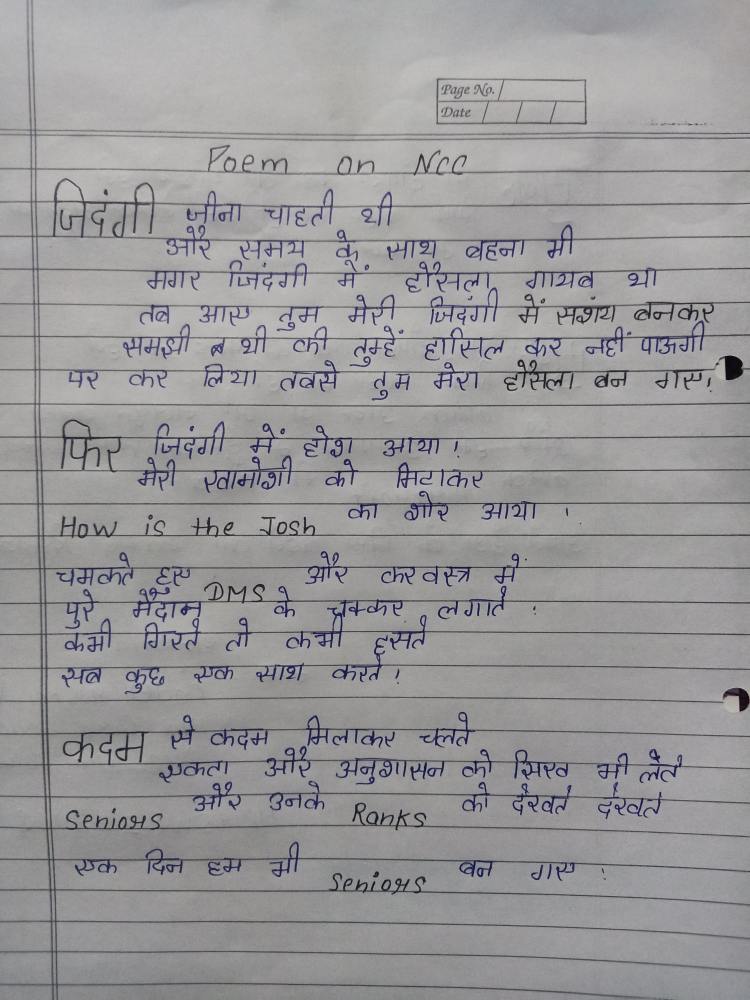 Page No.
Date
Poem on NCC
जिदंगी जीना चाहती थी
और समय के साथ बहना भी
मगर जिदंगी में हौसला गायब था
तब आए तुम मेरी जिदंगी में सशंय बनकर
समझी थी की तुम्हें हासिल कर नहीं पाऊगी
पर कर लिया तबसे तुम मेरा हौसला बन गए!
फिर जिदंगी में होश आया!
मेरी खामोशी को मिटाकर
How is the Josh का शोर आया !
चमकते हुए DMS और करवस्त्र में
पुरे मैदान के चक्कर लगाते !
कभी गिरते तो कभी हसते
सब कुछ एक साथ करते!
कदम से कदम मिलाकर चलते
एकता और अनुशासन को सिख भी लेते
Seniors और उनके Ranks को देखते देखते
एक दिन हम भी Seniors बन गए !